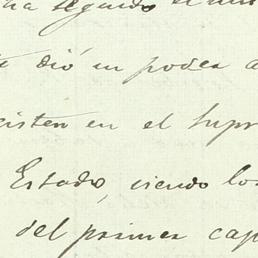 ha seguido el mis
dió un poder a
cisten en el Supr
Estado, siendo los
del primer cap